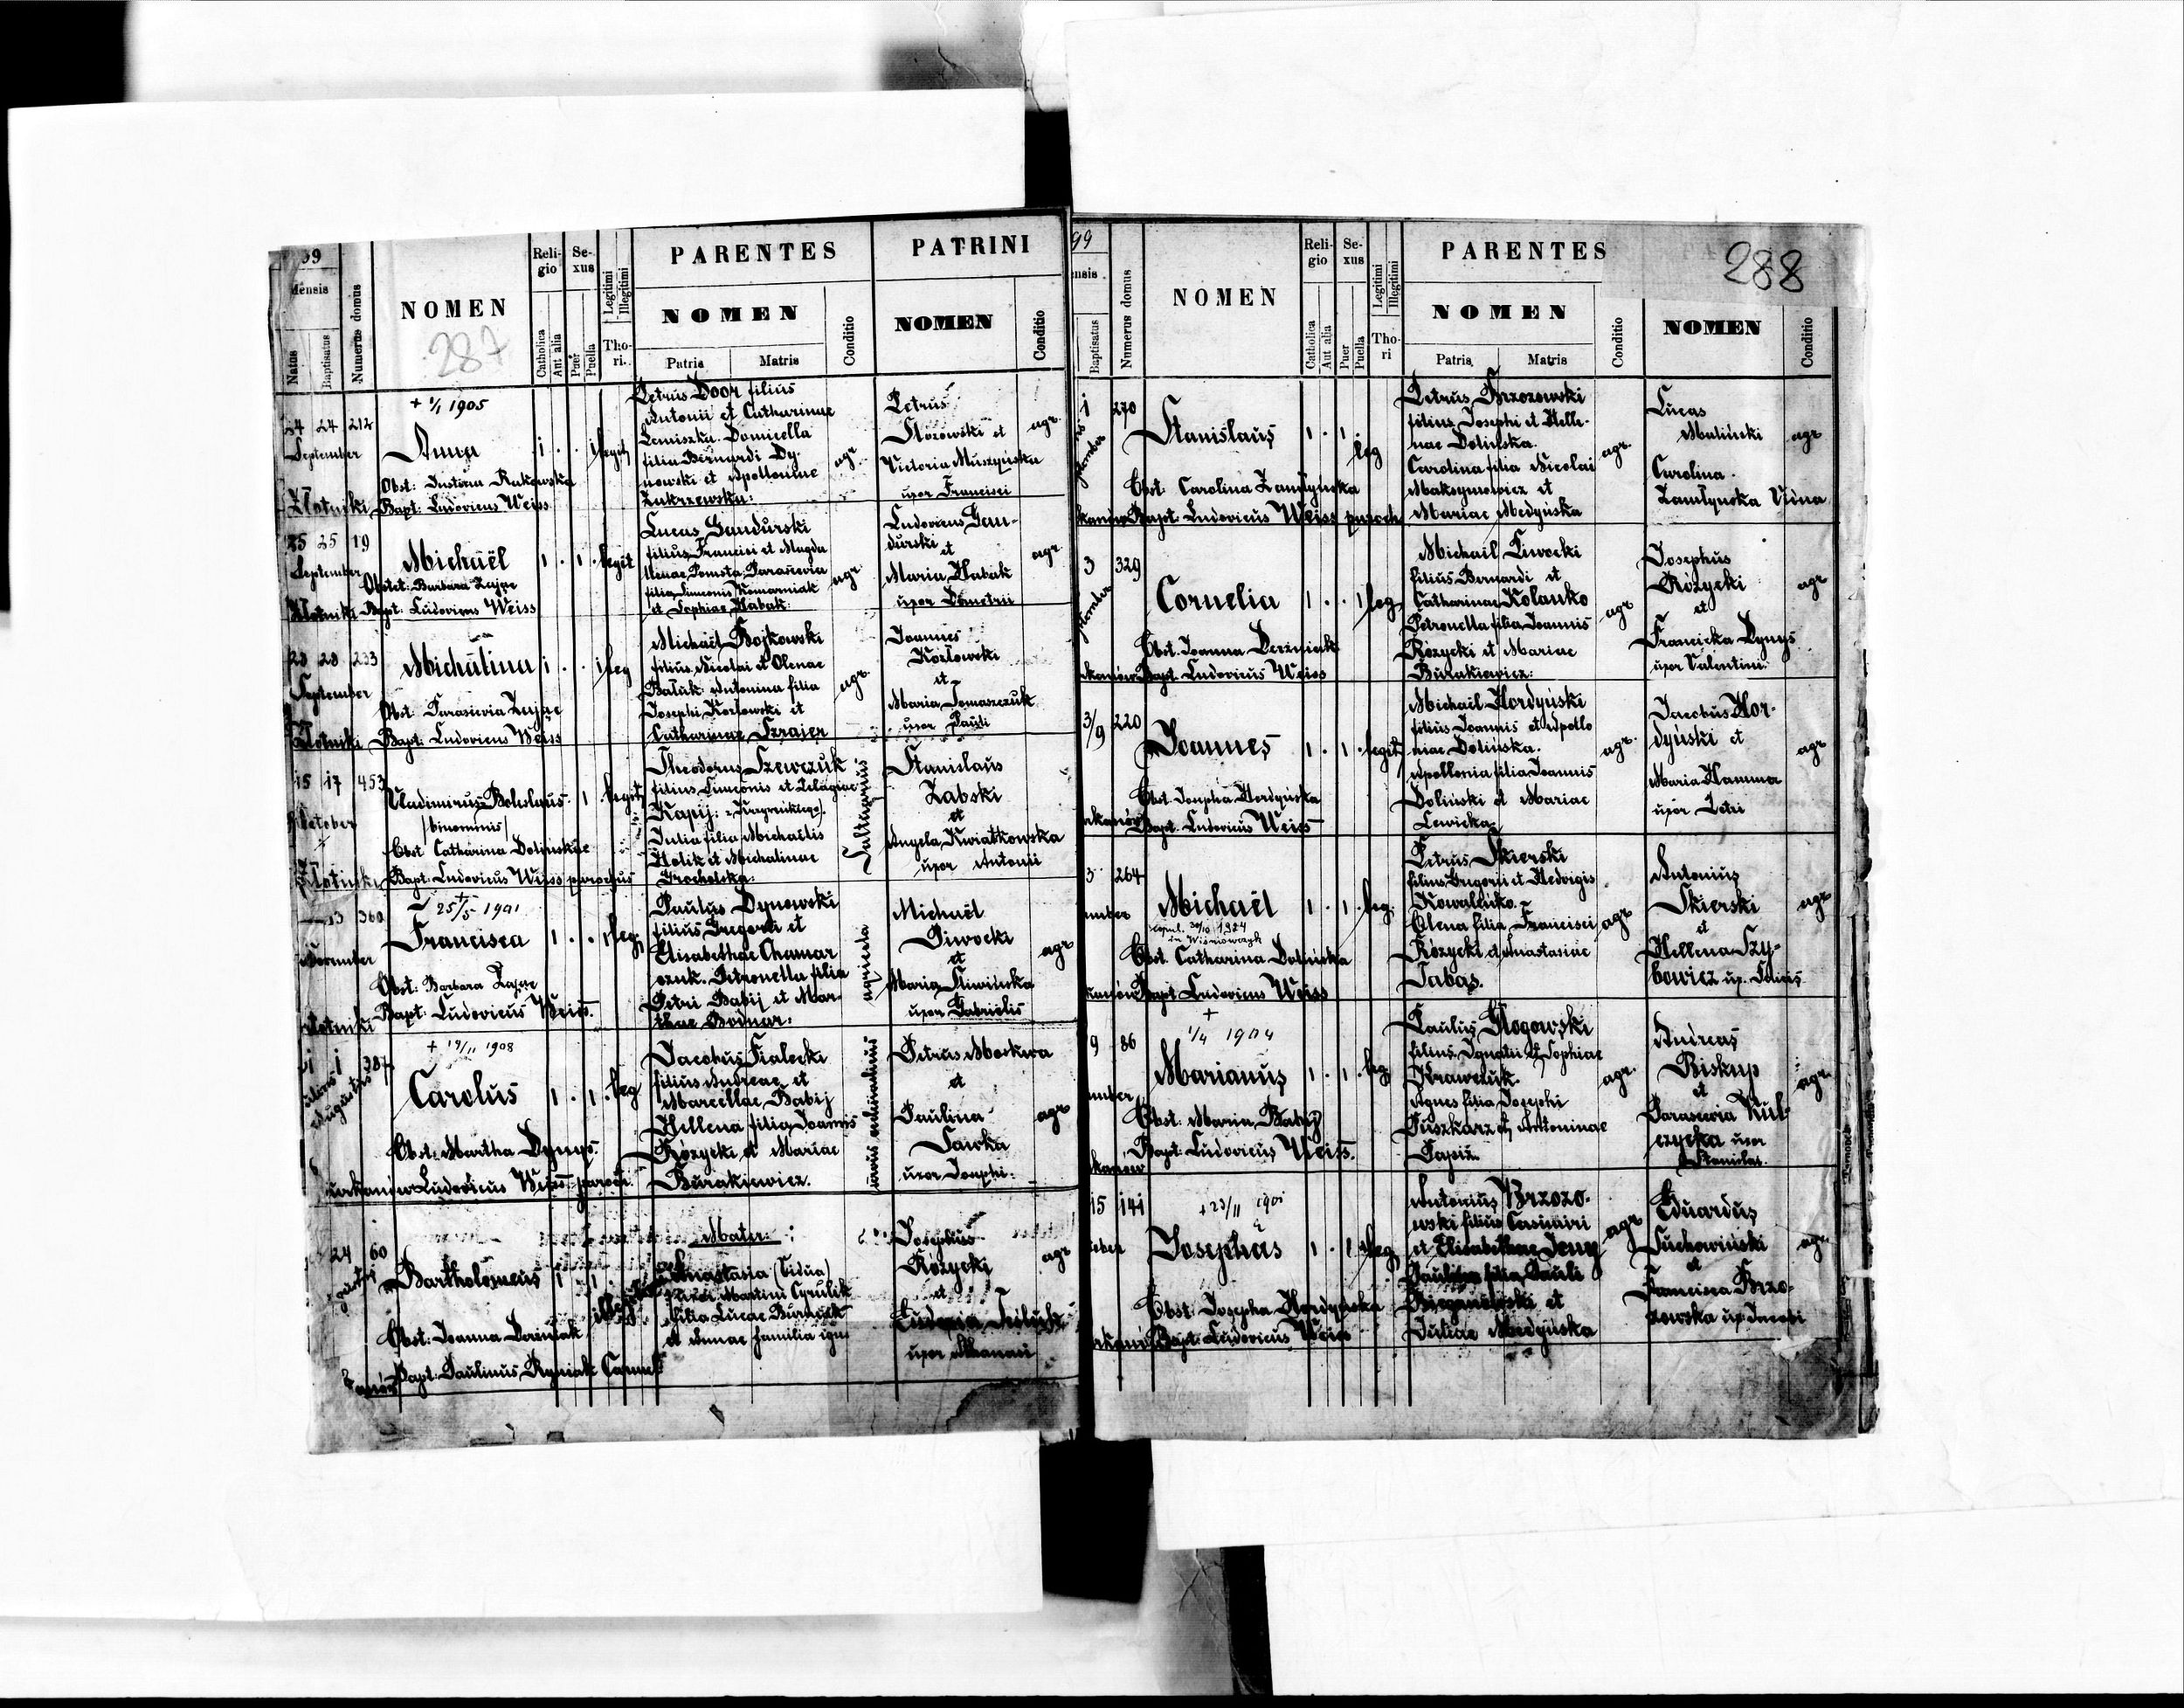 99
Mensis
Natus
Baptisatus
Numerus domus
NOMEN
287
Reli-
gio
Catholica
Aut alia
Se-
xus
Puer
Puella
Legitimi
Illegitimi
Tho-
ri.
PARENTES
NOMEN
Patris
Matris
Conditio
PATRINI
NOMEN
Conditio
24 24 212
September
Zlotniki
+ 1/1 1905
Anna
1 . . 1 legit
Obst: Justina Rakowska
Bapt: Ludovicus Weiss
Petrus Door filius
Antonii et Catharinae
Lemiszka. Domicella
filia Bernardi Dy-
nowski et Apolloniae
Zakrzewska:
agr
Petrus
Kozowski et
Victoria Muszyńska
uxor Francisci
agr
25 25 19
September
Zlotniki
Michaël
1 . 1 . legit
Obstet: Barbara Zając
Bapt: Ludovicus Weiss
Lucas Gandurski
filius Francisci et Magda
lenae Pomsta. Parascevia
filia Simeonis Komarniak
et Sophiae Habak.
agr
Ludovicus Gan-
durski
et
Maria Habak
uxor Demetrii
agr
28 28 233
September
Zlotniki
Michalina
1 . . 1 leg
Obst: Parascevia Zając
Bapt: Ludovicus Weiss
Michaël Bojkowski
filius Nicolai et Olenae
Baluk. Antonina filia
Josephi Kozłowski et
Catharinae Szrajer
agr.
Joannes
Kozłowski
et
Maria Tomaszczuk
uxor Pauli
15 17 453
October
Zlotniki
Vladimirus Boleslaus
/binominis/
1 . legit
Obst Catharina Dolinskae
Bapt: Ludovicus Weiss parochus
Theodorus Szewczuk
filius Simeonis et Pelagiae
Kapij:
Julia filia Michaëlis
Holik et Michalinae
Grocholska:
Saltuarius
Stanislaus
Zabski
et
Angela Kwiatkowska
uxor Antonii
13 360
November
Zlotniki
+ 25/5 1901
Francisca
1 . . 1 leg.
Obst: Barbara Zając
Bapt: Ludovicus Weiss.
Paulus Dynowski
filius Gregorii et
Elisabethae Chamar
czuk. Petronella filia
Petri Babij et Mar-
thae Bodnar.
agricola
Michaël
Piwocki
et
Maria Sliwińska
uxor Gabrielis
agr
1 387
Augustus
Burkanów
+ 19/11 1908
Carolus
1 . 1 . leg
Obst: Martha Dynys.
Ludovicus Weiss paroch.
Jacobus Fialecki
filius Andreae et
Marcellae Babij
Hellena filia Joannis
Rózycki et Mariae
Burakiewicz.
Petrus Moskwa
et
Paulina
Sawka
uxor Josephi.
agr
24 60
Bartholomeus
1 . 1
Obst: Joanna Dereniak
Bapt: Paulinus Ryniak
Mater:
Anastasia (Vidua)
Martini Cyrulik
filia Lucae Burnacik
et Annae familia igno
Josephus
Rózycki
et
Eudoxia
uxor Athanasi
agr
99
ensis
Baptisatus
Numerus domus
NOMEN
Reli-
gio
Catholica
Aut alia
Se-
xus
Puer
Puella
Legitimi
Illegitimi
Tho-
ri
PARENTES
NOMEN
Patris
Matris
Conditio
288
NOMEN
Conditio
1 270
Stanislaus
1 . 1 . leg
Obst: Carolina Zamłyńska
Bapt: Ludovicus Weiss paroch
Petrus Brzozowski
filius Josephi et Helle-
nae Dolińska.
Carolina filia Nicolai
Maksymowicz et
Mariae Medyńska
agr.
Lucas
Maliński
Carolina
Zamłynska Vidua
agr
3 329
Cornelia
1 . . 1 leg
Obst. Joanna Dereniak
Bapt. Ludovicus Weiss
Michaël Piwocki
filius Bernardi et
Catharinae Kolanko
Petronella filia Joannis
Rózycki et Mariae
Burakiewicz:
agr
Josephus
Rózycki
et
Francisca Dynys
uxor Valentini.
agr
3/9 220
Joannes
1 . 1 . legit
Obst. Josepha Hordyńska
Bapt. Ludovicus Weiss
Michaël Hordyński
filius Joannis et Apollo
niae Dolińska.
Apollonia filia Joannis
Doliński et Mariae
Lewicka
agr.
Jacobus Hor-
dyński et
Maria Hamma
uxor Petri
agr
5 264
Michaël
copul. 30/10 1924
in Wiśniowczyk
1 . 1 . leg.
Obst. Catharina Dolińska
Bapt Ludovicus Weiss
Petrus Skierski
filius Gregorii et Hedvigis
Kowalenko.
Olena filia Francisci
Rózycki et Anastasiae
Tabas.
agr
Antonius
Skierski
et
Hellena Szy-
bowicz ux.
agr
9 86
+
1/4 1904
Marianus
1 . 1 . leg
Obst: Maria Babij
Bapt: Ludovicus Weiss.
Paulus Głogowski
filius Ignatii et Sophiae
Krawczuk.
Agnes filia Josephi
Puszkarz et Antoninae
Papiż.
agr.
Andreas
Biskup
et
Parascevia Kul-
czycka uxor
Stanislai.
agr
15 141
+ 23/11 1901
Josephus
1 . 1 . leg
Obst: Josepha Hordyńska
Bapt: Ludovicus Weiss
Antonius Brzozo-
wski filius Casimiri
et Elisabethae
Paulina filia Pauli
et
Juliae Medyńska
agr
Eduardus
Suchowiński
et
Francisca Brzo-
zowska ux Jacobi
agr